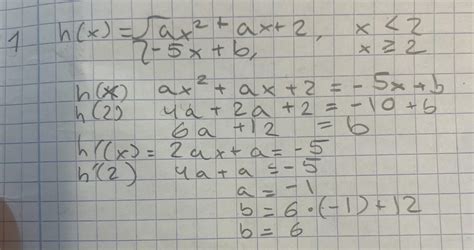 1 h(x) = { ax² + ax + 2, x < 2
{ -5x + b, x ≥ 2
h(x) ax² + ax + 2 = -5x + b
h(2) 4a + 2a + 2 = -10 + b
6a + 12 = b
h'(x) = 2ax + a = -5
h'(2) 4a + a = -5
a = -1
b = 6 · (-1) + 12
b = 6